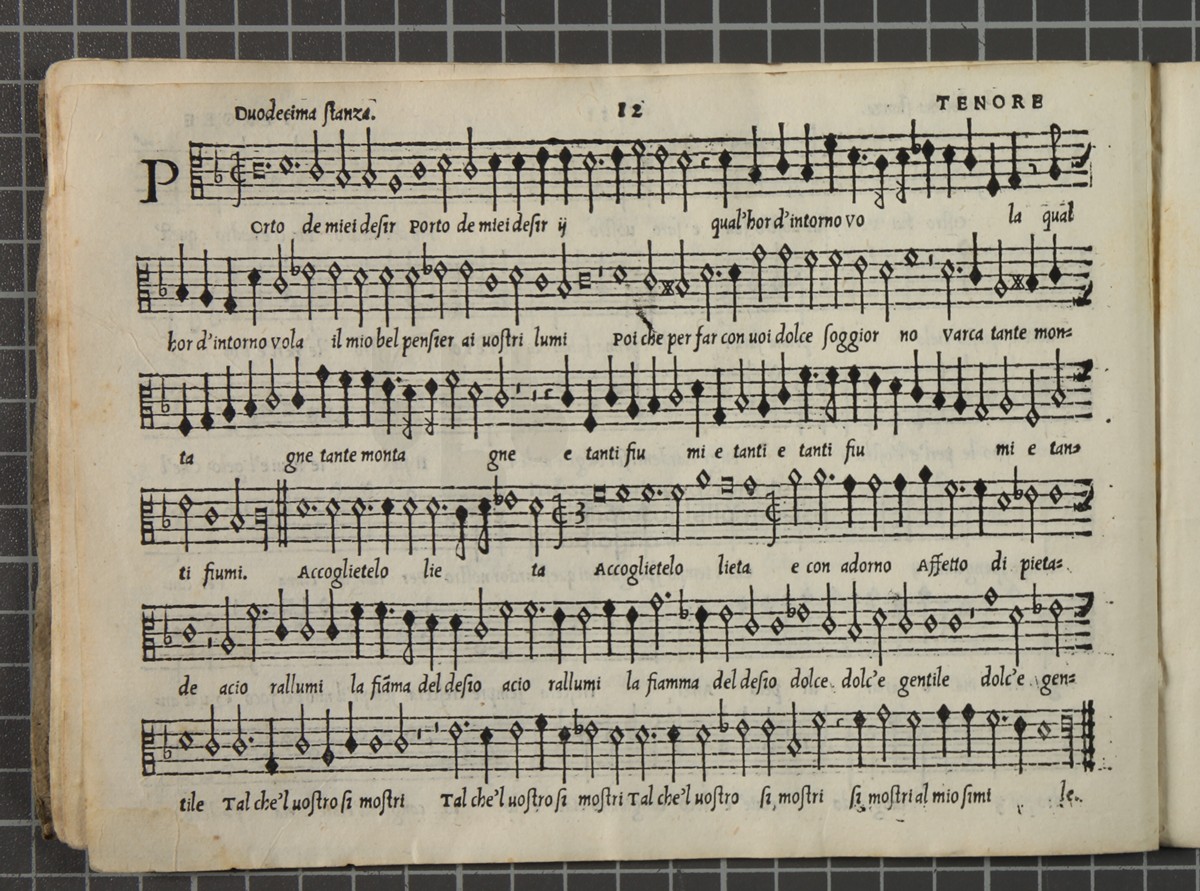 Duodecima ſtanza. 12 TENORE
P Orto de miei deſir Porto de miei deſir ij qual'hor d'intorno vo la qual
hor d'intorno vola il mio bel penſier ai uoſtri lumi Poi che per far con uoi dolce ſoggior no varca tante mon=
ta gne tante monta gne e tanti fiu mi e tanti e tanti fiu mi e tan=
ti fiumi. Accoglietelo lie ta Accoglietelo lieta e con adorno Affetto di pieta=
de acio rallumi la fiāma del deſio acio rallumi la fiamma del deſio dolce dolc'e gentile dolc'e gen=
tile Tal che'l uoſtro ſi moſtri Tal che'l uoſtro ſi moſtri Tal che'l uoſtro ſi moſtri ſi moſtri al mio ſimi le.